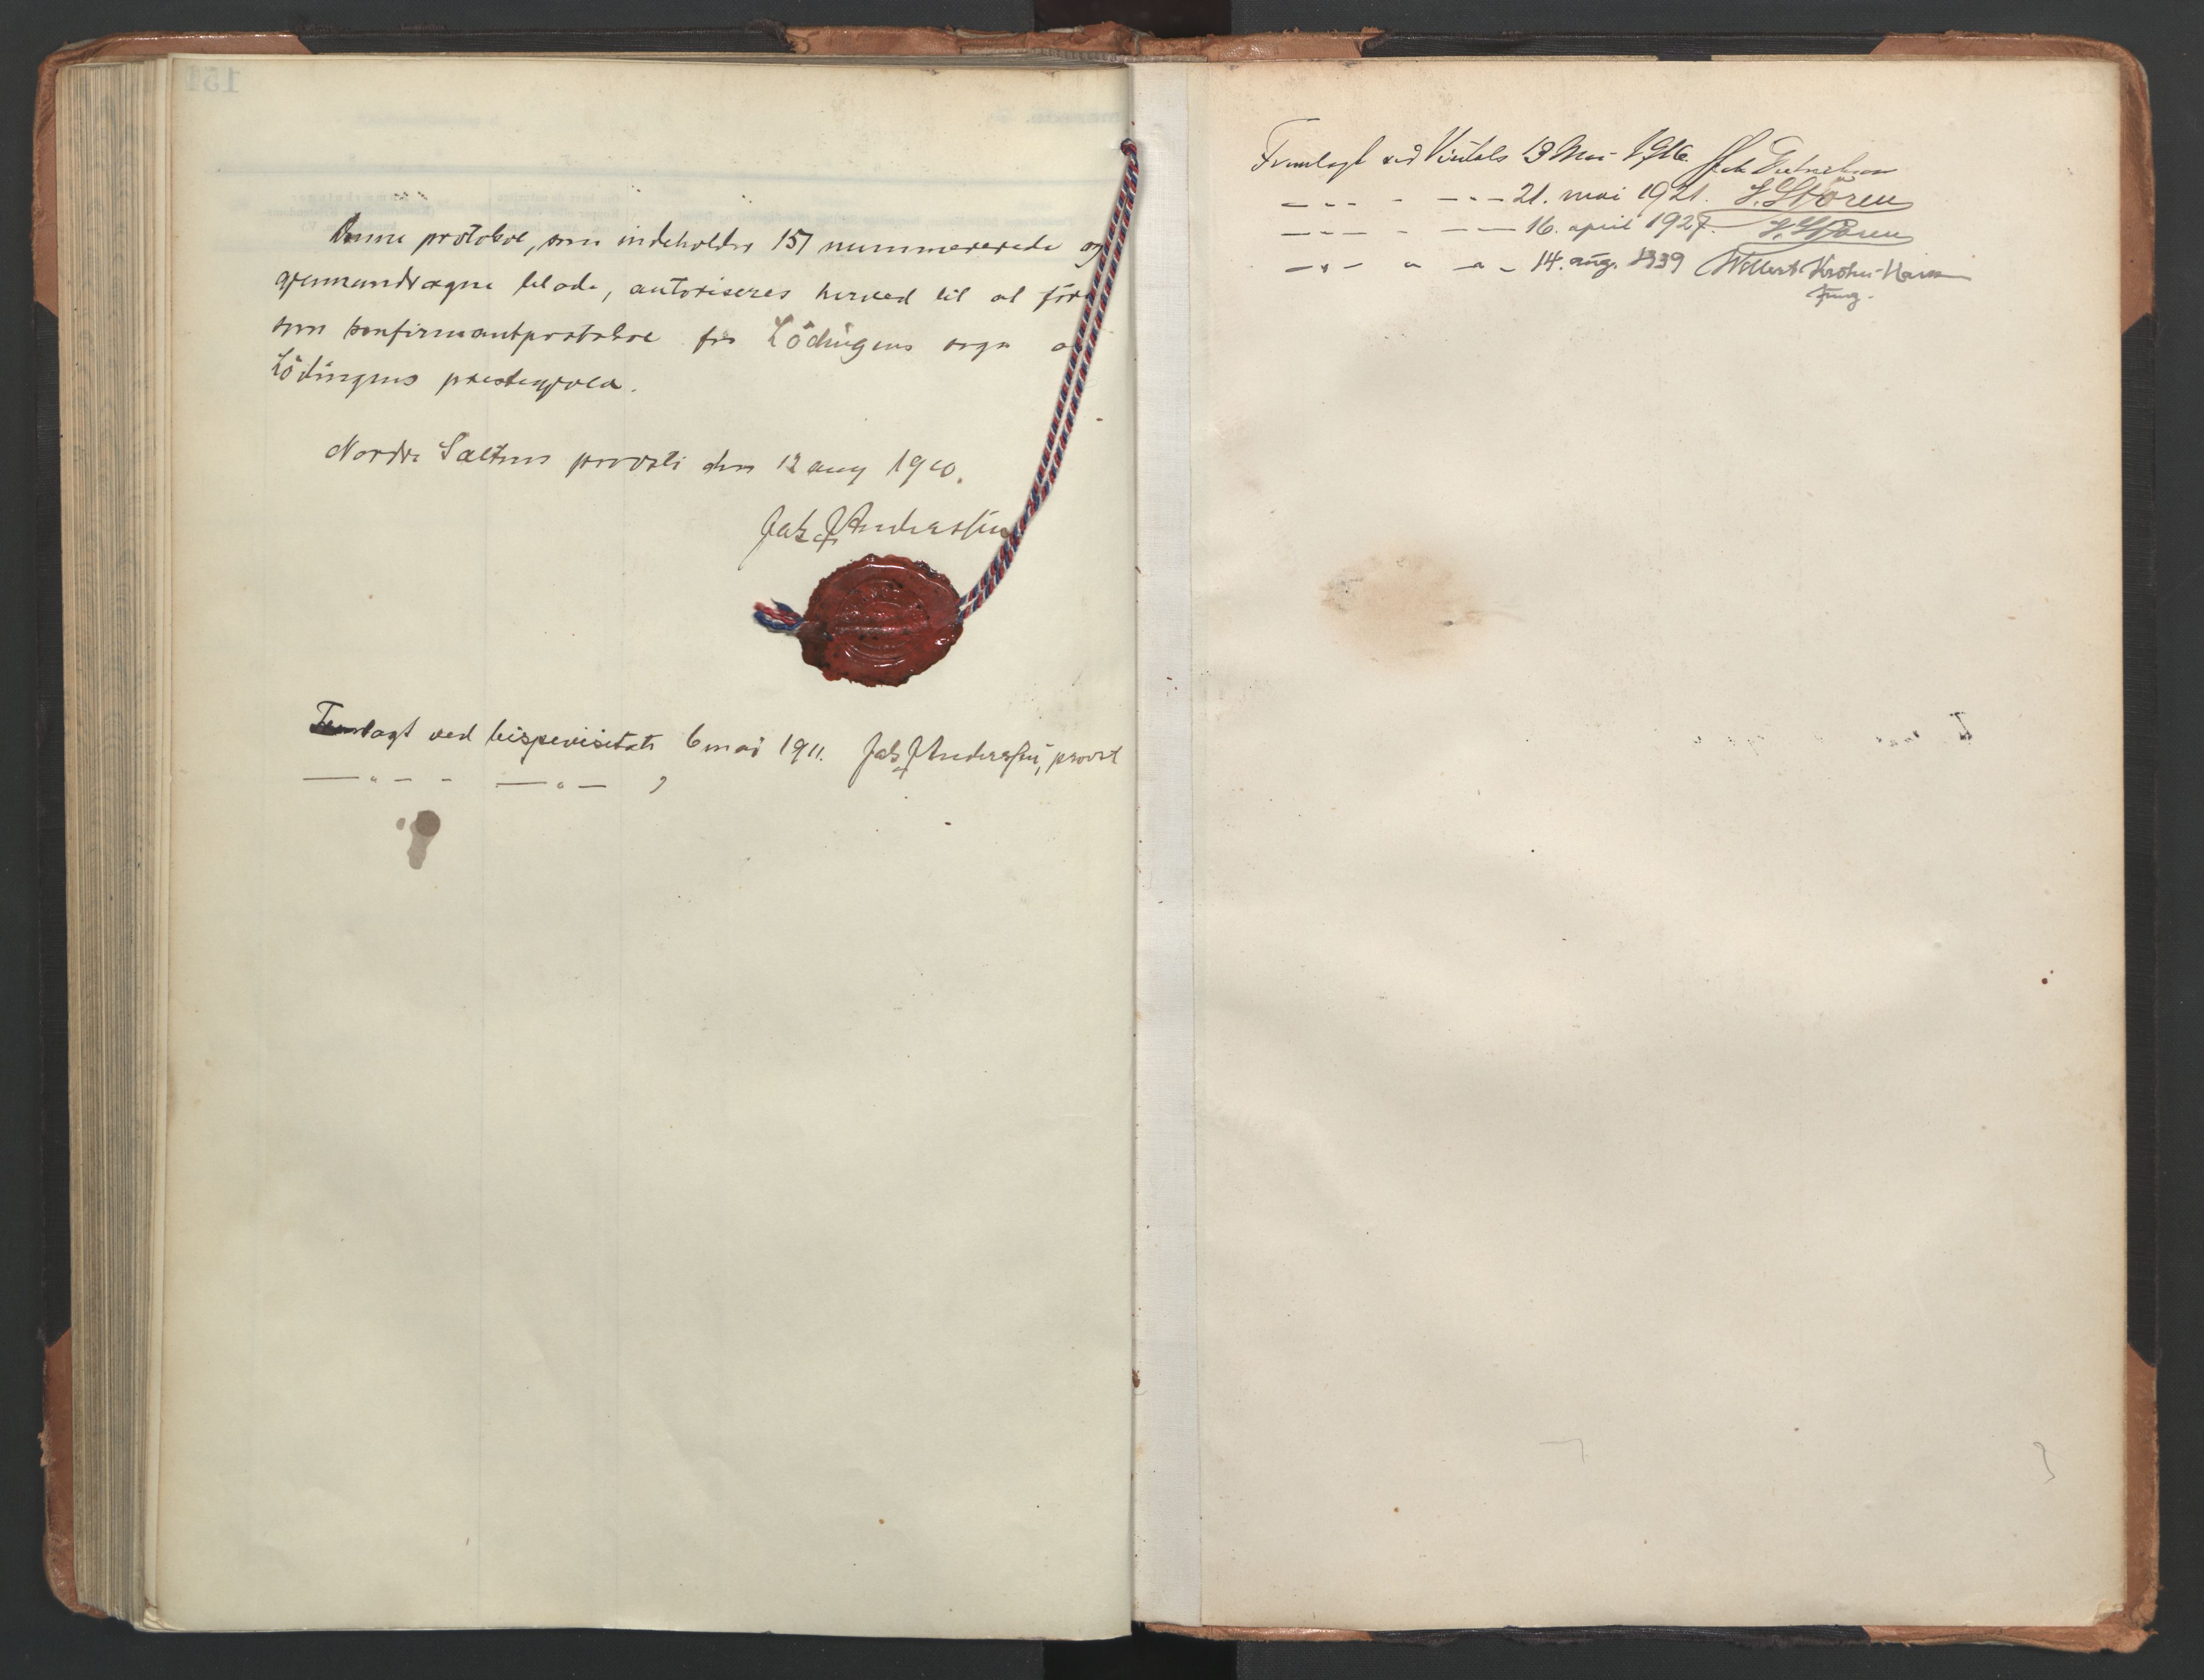 Denne protokol, som indeholder 151 nummererede og
gjennemdragne blade, autoriseres herved til at føre
som konfirmantprotokol for Lödingens sogn a
Lödingens prestegjeld.
Nordre Saltens provsti den 12 aug 1910.
Jak J Anderssen
Fremlagt ved bispevisitats 6 mai 1911. Jak J Anderssen, provst
— " — - — " — ,
Fremlagt ved Visitats 13 Mai 1916.
— - - - — - - 21. mai 1921. S. Støren
— - — - — — 16. april 1927. S. Støren
— " — " — " — 14. aug. 1939 Willert Krohn-Hansen
fung.
151